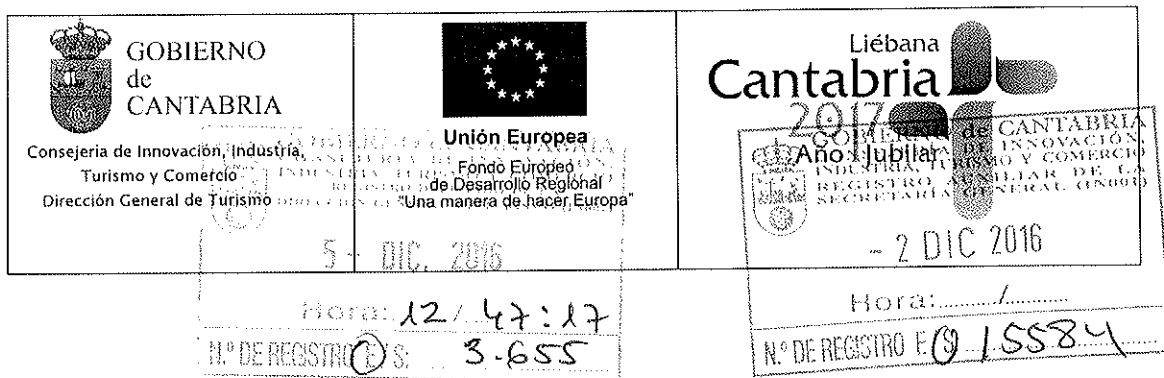 GOBIERNO
de
CANTABRIA
Consejeria de Innovación, Industria,
Turismo y Comercio
Dirección General de Turismo
Unión Europea
Fondo Europeo
de Desarrollo Regional
"Una manera de hacer Europa"
Liébana
Cantabria
2017
Año Jubilar
5 - DIC. 2016
Hora: 12/ 47:17
N.º DE REGISTRO E/S: 3.655
GOBIERNO de CANTABRIA
CONSEJERÍA DE INNOVACIÓN,
INDUSTRIA, TURISMO Y COMERCIO
REGISTRO AUXILIAR DE LA
SECRETARIA GENERAL (IN001)
- 2 DIC 2016
Hora: /
N.º DE REGISTRO E (S) 15584